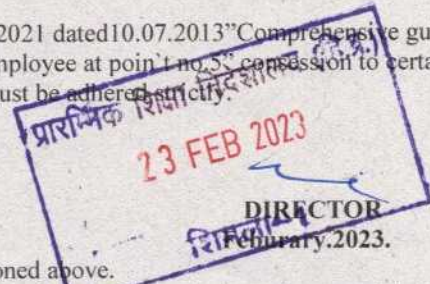 2021 dated10.07.2013”Comprehensive gu
mployee at poin`t no.5” concession to certa
ust be adhered strictly.
प्रारम्भिक शिक्षा निदेशालय (हि.प्र.)
23 FEB 2023
DIRECTOR
शिमला-1
Feburary.2023.
oned above.